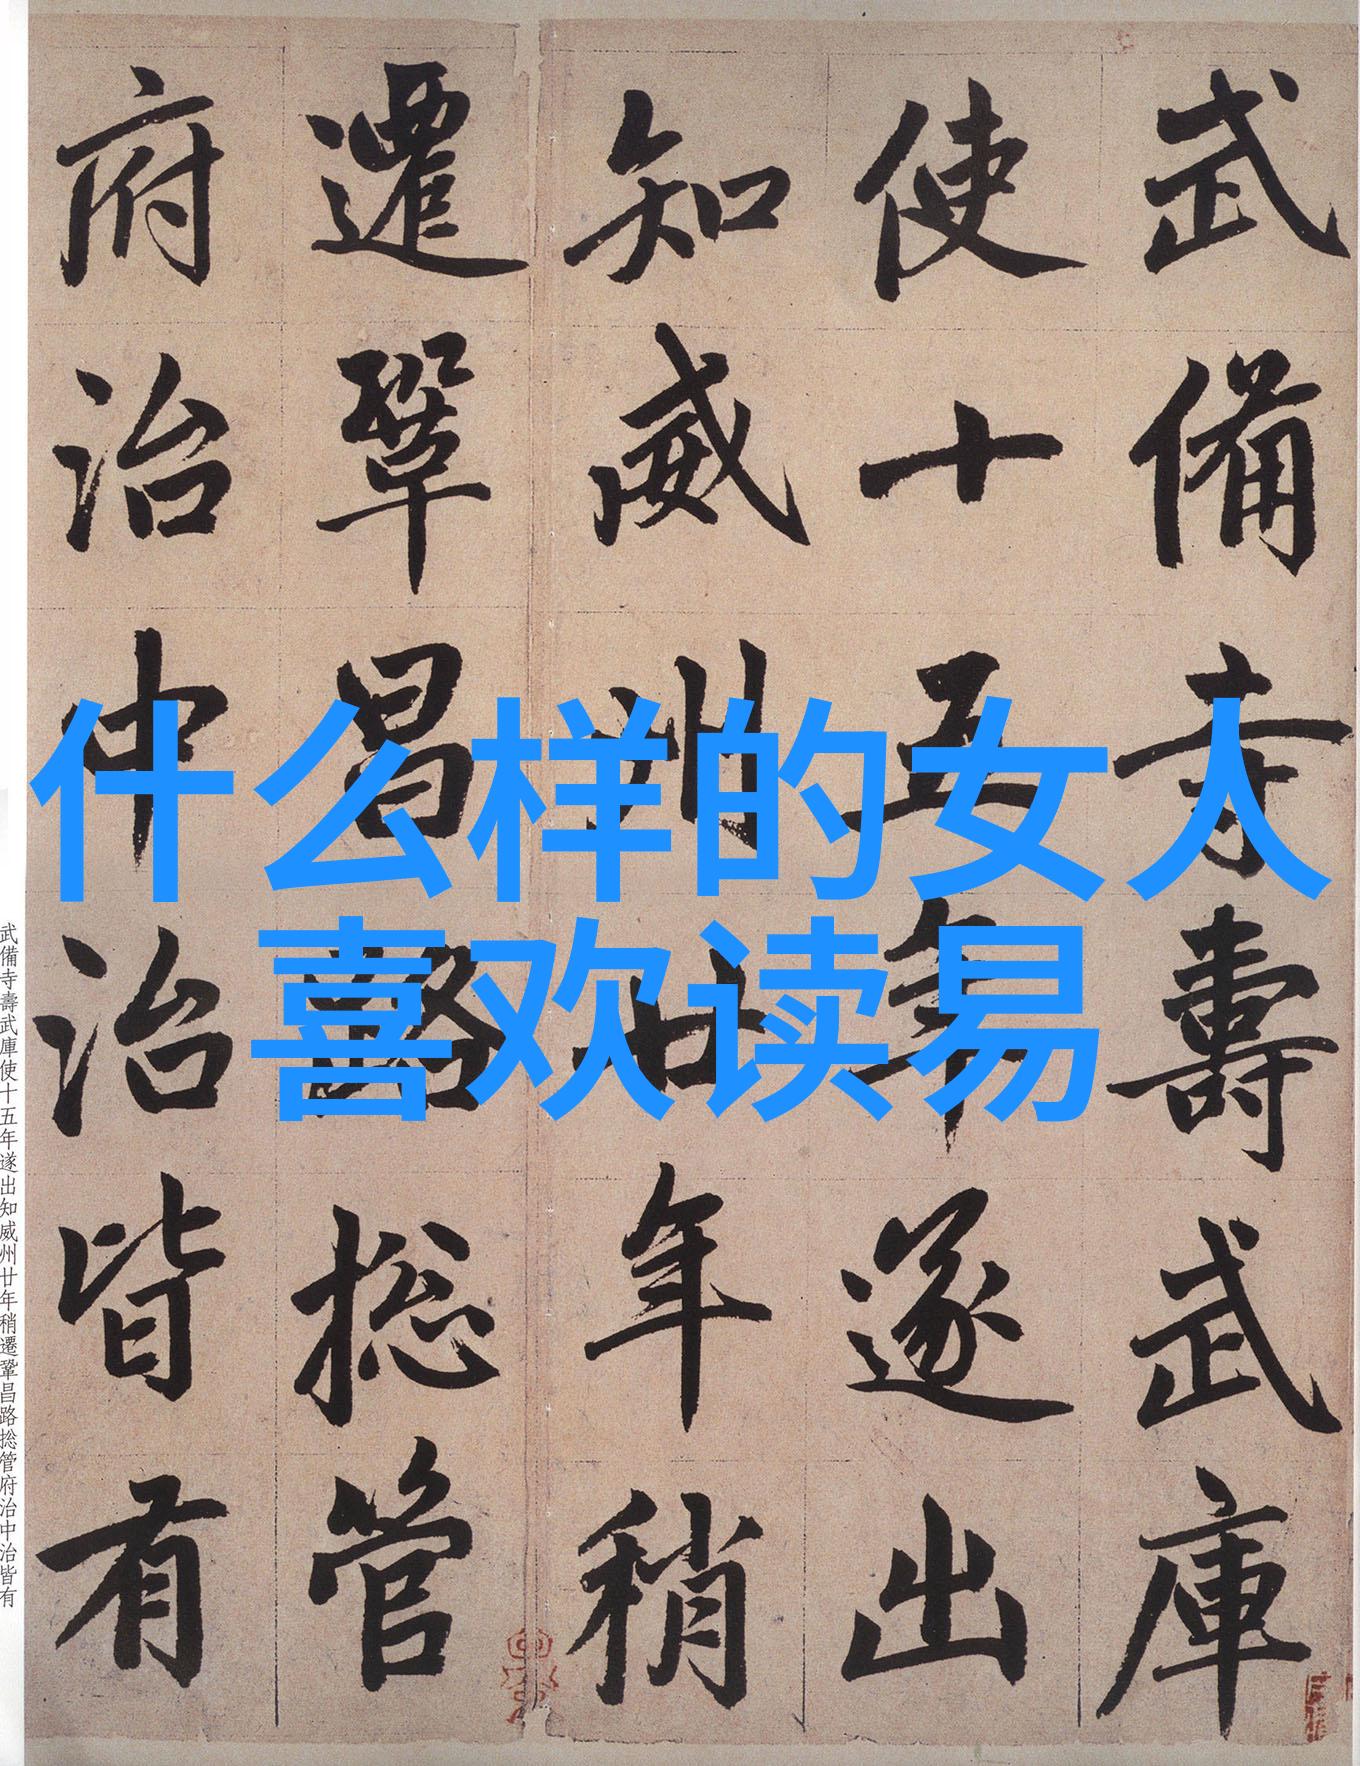 什么样的女人
喜欢读易
武備寺壽武庫
使十五年遂出
知威州廿年稍
遷鞏昌路捴管
府治中治皆有
武備寺壽武庫使十五年遂出知威州廿年稍遷鞏昌路捴管府治中治皆有